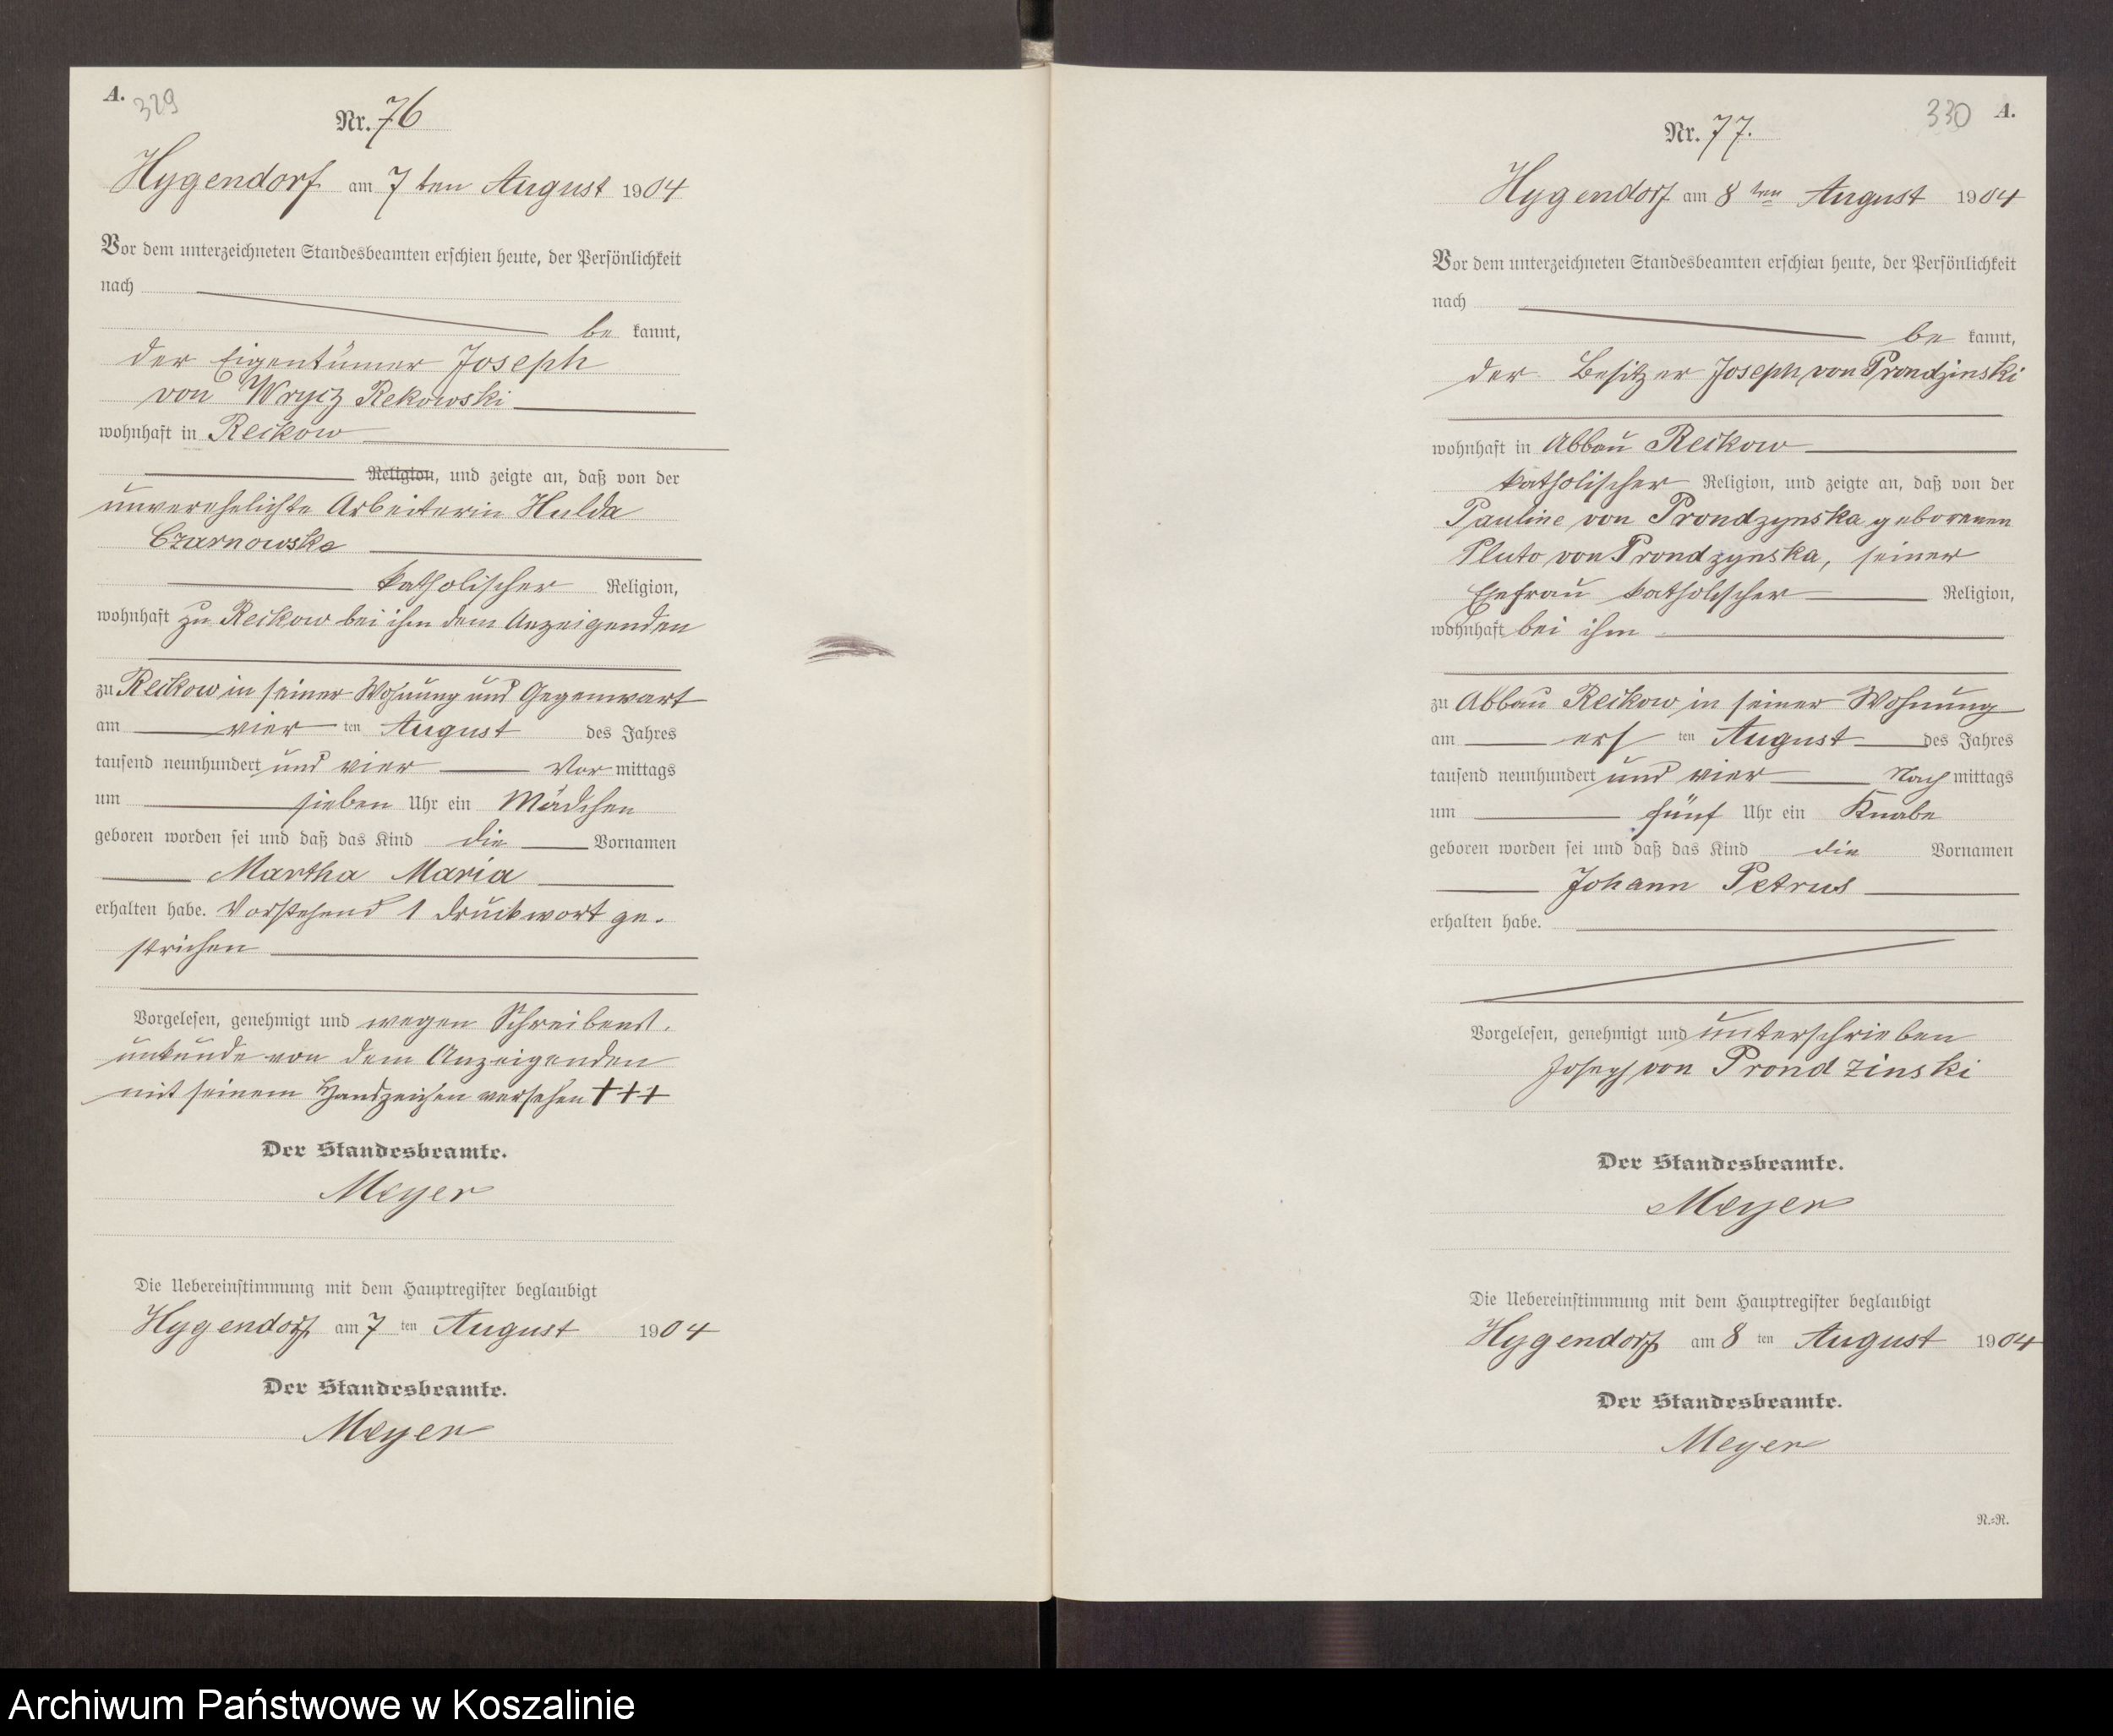 A.
329
Nr. 76
Hygendorf am 7 ten August 1904
Vor dem unterzeichneten Standesbeamten erschien heute, der Persönlichkeit
nach
be kannt,
der Eigentümer Joseph
von Wrycz Rekowski
wohnhaft in Reckow
Religion, und zeigte an, daß von der
unverehelichte Arbeiterin Hulda
Czarnowske
katholischer Religion,
wohnhaft zu Reckow bei ihm dem Anzeigenden
zu Reckow in seiner Wohnung und Gegenwart
am vier ten August des Jahres
tausend neunhundert und vier Vor mittags
um sieben Uhr ein Mädchen
geboren worden sei und daß das Kind die Vornamen
Martha Maria
erhalten habe. Vorstehend 1 Druckwort ge-
strichen
Vorgelesen, genehmigt und wegen Schreibens-
unkunde von dem Anzeigenden
mit seinem Handzeichen versehen +++
Der Standesbeamte.
Meyer
Die Uebereinstimmung mit dem Hauptregister beglaubigt
Hygendorf am 7 ten August 1904
Der Standesbeamte.
Meyer
330 A.
Nr. 77.
Hygendorf am 8 ten August 1904
Vor dem unterzeichneten Standesbeamten erschien heute, der Persönlichkeit
nach
be kannt,
der Besitzer Joseph von Prondzinski
wohnhaft in Abbau Reckow
katholischer Religion, und zeigte an, daß von der
Pauline von Prondzynska geborenen
Pluto von Prondzynska, seiner
Ehefrau katholischer Religion,
wohnhaft bei ihm
zu Abbau Reckow in seiner Wohnung
am ers ten August des Jahres
tausend neunhundert und vier Nach mittags
um fünf Uhr ein Knabe
geboren worden sei und daß das Kind die Vornamen
Johann Petrus
erhalten habe.
Vorgelesen, genehmigt und unterschrieben
Joseph von Prondzinski
Der Standesbeamte.
Meyer
Die Uebereinstimmung mit dem Hauptregister beglaubigt
Hygendorf am 8 ten August 1904
Der Standesbeamte.
Meyer
N.=R.
Archiwum Państwowe w Koszalinie